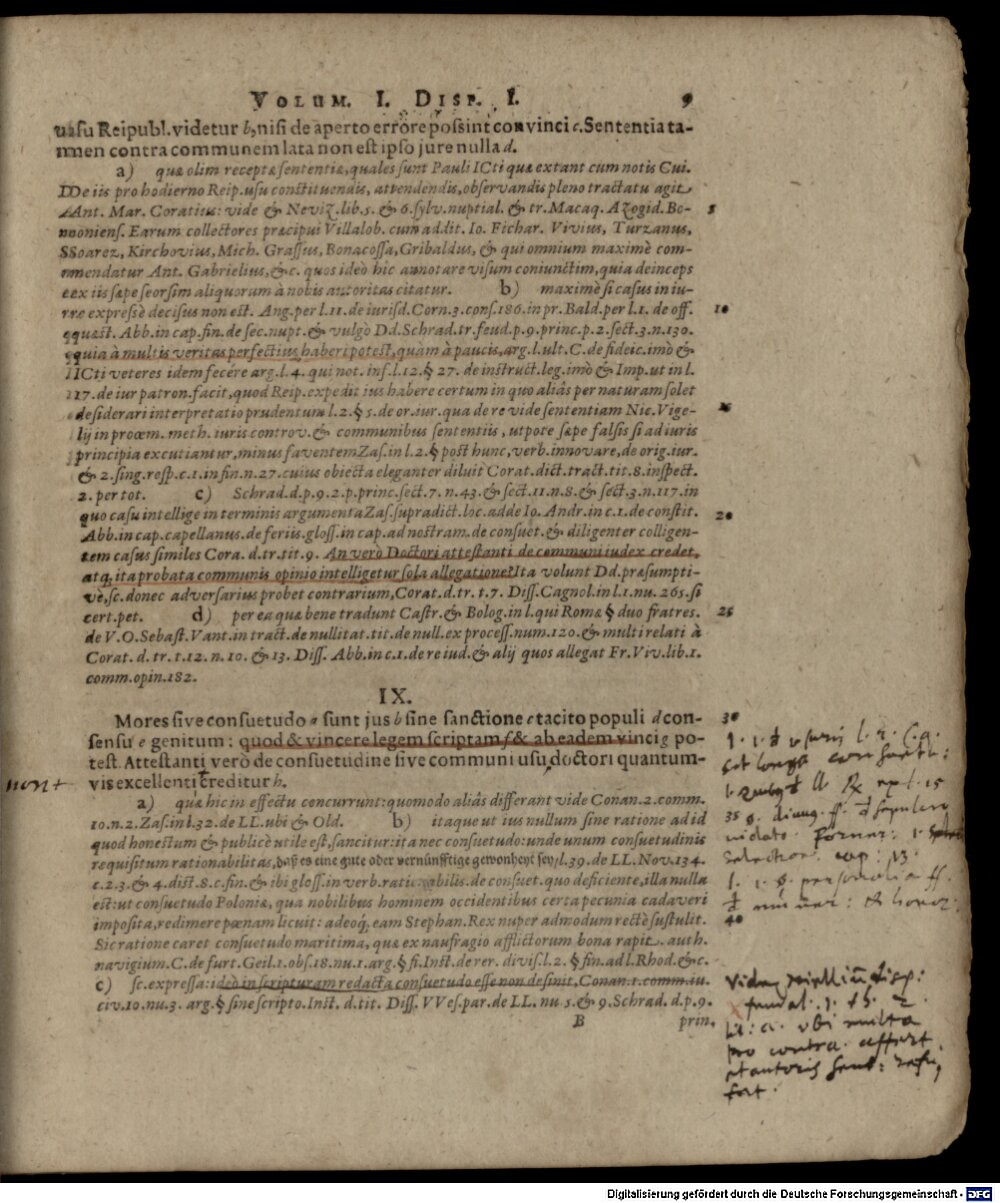 VOLUM. I. DISP. I. 9
vasu Reipubl. videtur b, nisi de aperto errore possint convinci c. Sententia ta-
men contra communem lata non est ipso jure nulla d.
a) quæ olim receptæ sententiæ, quales sunt Pauli ICti quæ extant cum notis Cui.
De iis pro hodierno Reip. usu constituendis, attendendis, observandis pleno tractatu agit
Ant. Mar. Coratius: vide & Neviz. lib. 5. & 6. sylv. nuptial. & tr. Macaq. Azogid. Bo- 5
noniens. Earum collectores præcipui Villalob. cum addit. Io. Fichar. Vivius, Turzanus,
Soarez, Kirchovius, Mich. Grassus, Bonacossa, Gribaldus, & qui omnium maximè com-
mendatur Ant. Gabrielius, &c. quos ideò hic annotare visum coniunctim, quia deinceps
ex iis sæpe seorsim aliquoram à nobis autoritas citatur. b) maximè si casus in iu-
re expressè decisus non est. Ang. per l. 11. de iurisd. Corn. 3. cons. 186. in pr. Bald. per l. 1. de off. 10
quæst. Abb. in cap. fin. de sec. nupt. & vulgò Dd. Schrad. tr. feud. p. 9. princ. p. 2. sect. 3. n. 130.
quia à multis veritas perfectius haberi potest, quàm à paucis, arg. l. ult. C. de fideic. imò &
ICti veteres idem fecére arg. l. 4. qui not. inf. l. 12. § 27. de instruct. leg. imò & Imp. ut in l.
17. de iur patron. facit, quod Reip. expedit ius habere certum in quo aliâs per naturam solet
desiderari interpretatio prudentum l. 2. § 5. de or. iur. qua de re vide sententiam Nic. Vige- 15
lij in proœm. meth. iuris controv. & communibus sententiis, utpote sæpe falsis si ad iuris
principia excutiantur, minus faventem Zas. in l. 2. § post hunc, verb. innovare, de orig. iur.
& 2. sing. resp. c. 1. in fin. n. 27. cuius obiecta eleganter diluit Corat. dict. tract. tit. 8. inspect.
2. per tot. c) Schrad. d. p. 9. 2. p. princ. sect. 7. n. 43. & sect. 11. n. 8. & sect. 3. n. 117. in
quo casu intellige in terminis argumenta Zas. supradict. loc. adde Io. Andr. in c. 1. de constit. 20
Abb. in cap. capellanus. de feriis. gloss. in cap. ad nostram. de consuet. & diligenter colligen-
tem casus similes Cora. d. tr. tit. 9. An verò Doctori attestanti de communi iudex credet,
atq; ita probata communis opinio intelligetur sola allegatione? Ita volunt Dd. præsumpti-
vè, sc. donec adversarius probet contrarium, Corat. d. tr. t. 7. Diss. Cagnol. in l. 1. nu. 265. si
cert. pet. d) per ea quæ bene tradunt Castr. & Bolog. in l. qui Romæ § duo fratres. 25
de V. O. Sebast. Vant. in tract. de nullitat. tit. de null. ex process. num. 120. & multi relati à
Corat. d. tr. t. 12. n. 10. & 13. Diss. Abb. in c. 1. de re iud. & alij quos allegat Fr. Viv. lib. 1.
comm. opin. 182.
IX.
Mores sive consuetudo a sunt jus b sine sanctione c tacito populi d con- 30
sensu e genitum: quod & vincere legem scriptam f & ab eadem vinci g po-
test. Attestanti verò de consuetudine sive communi usu, doctori quantum-
vis excellenti creditur h.
non +
a) quæ hic in effectu concurrunt: quomodo aliâs differant vide Conan. 2. comm.
10. n. 2. Zas. in l. 32. de LL. ubi & Old. b) itaque ut ius nullum sine ratione ad id 35
quod honestum & publicè utile est, sancitur: ita nec consuetudo: unde unum consuetudinis
requisitum rationabilitas, daß es eine gute oder vernünfftige gewonheyt sey, l. 39. de LL. Nov. 134.
c. 2. 3. & 4. dist. 8. c. fin. & ibi gloss. in verb. rationabilis. de consuet. quo deficiente, illa nulla
est: ut consuetudo Poloniæ, qua nobilibus hominem occidentibus certa pecunia cadaveri
imposita, redimere pœnam licuit: adeoq; eam Stephan. Rex nuper admodum rectè sustulit. 40
Sic ratione caret consuetudo maritima, quæ ex naufragio afflictorum bona rapit. auth.
navigium. C. de furt. Geil. 1. obs. 18. nu. 1. arg. § fi. Inst. de rer. divis. l. 2. § fin. ad l. Rhod. &c.
c) sc. expressa: ideò in scripturam redacta consuetudo esse non desinit, Conan. 1. comm. iu-
civ. 10. nu. 3. arg. § sine scripto. Inst. d. tit. Diss. VVes. par. de LL. nu 5. & 9. Schrad. d. p. 9.
B prin.
selection. cap: 13.
feudal. 1. th. 2.
lit: a. ubi multa
pro contra. affert,
et autoris sent:
Digitalisierung gefördert durch die Deutsche Forschungsgemeinschaft - DFG